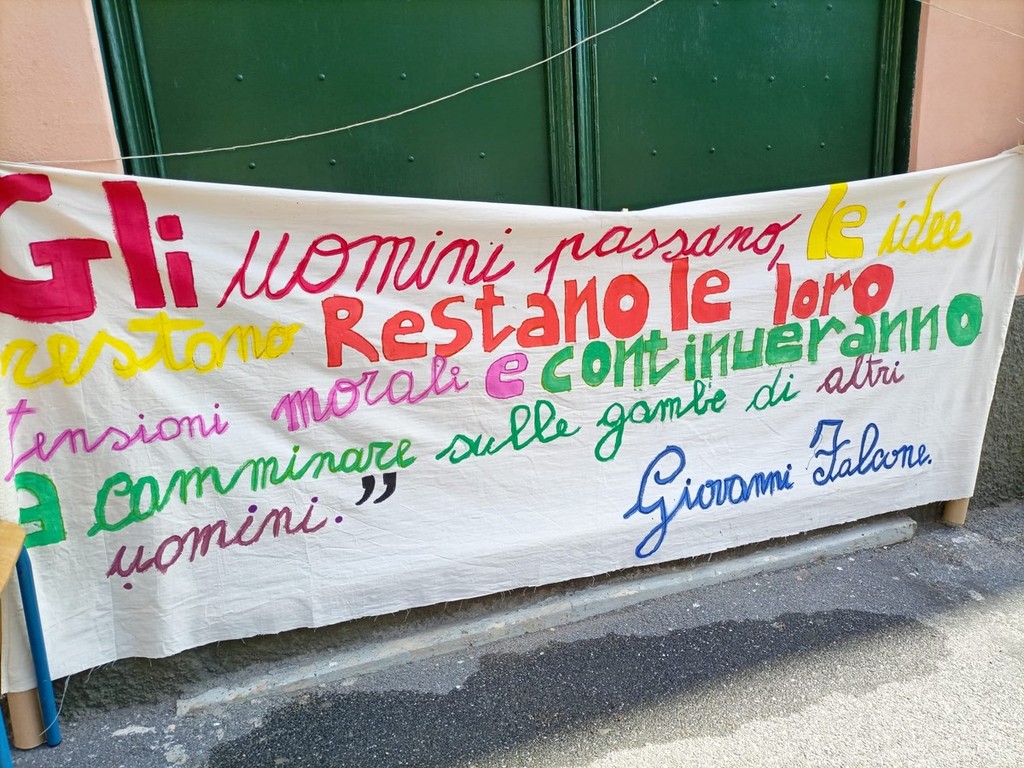 Gli uomini passano, le idee
restano Restano le loro
tensioni morali e continueranno
a camminare sulle gambe di altri
uomini.”
Giovanni Falcone.